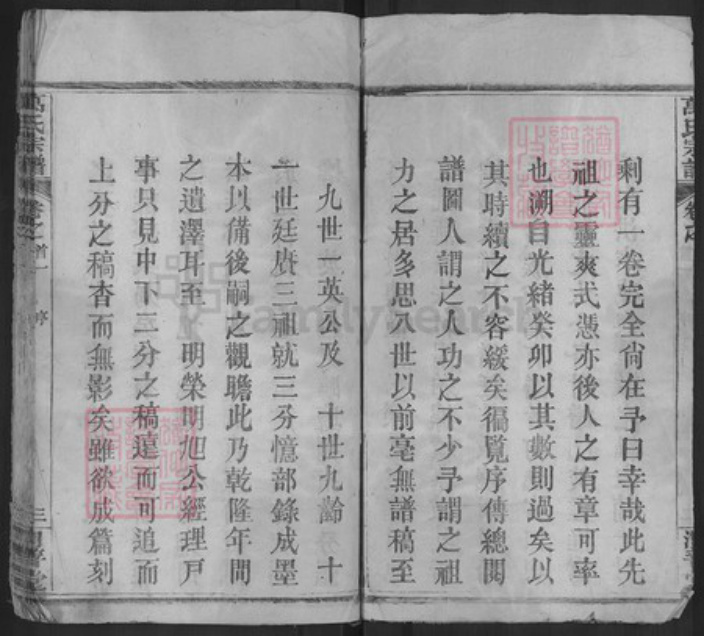 萬氏宗譜
剩有一卷完全尙在予曰幸哉此先
祖之靈爽式憑亦後人之有章可率
也溯自光緒癸卯以其數則過矣以
其時續之不容緩矣徧覽序傳總閱
譜圖人謂之人功之不少予謂之祖
力之居多思八世以前毫無譜稿至
九世一英公及 十世九齡 十
一世廷賡三祖就三分憶部錄成墨
本以備後嗣之觀瞻此乃乾隆年間
之遺澤耳至 明榮明旭公經理戸
事只見中下二分之稿遠而可追而
上分之稿杳而無影矣雖欲成篇刻
萬氏宗譜 卷之首一 序 三
FamilySearch